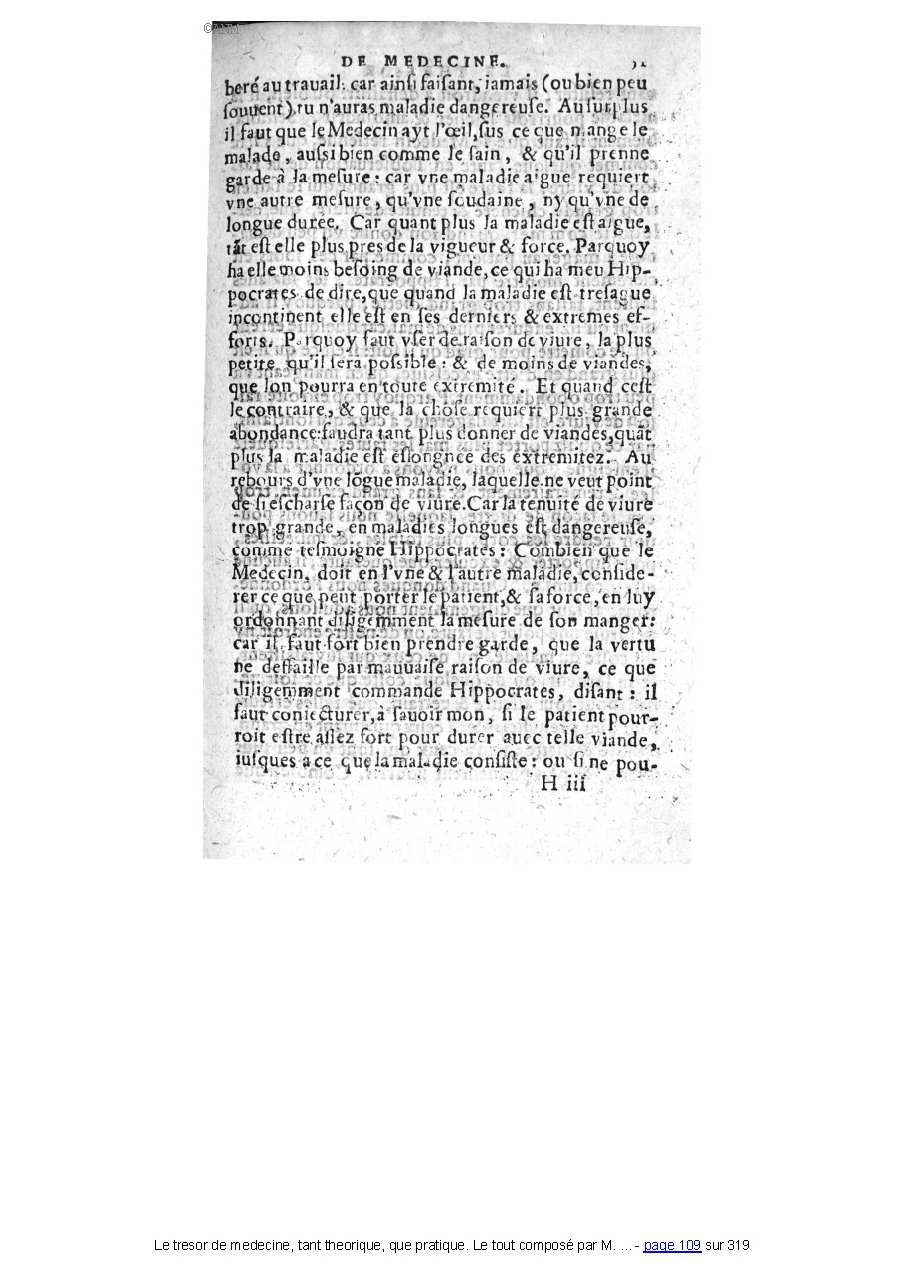 DE MEDECINE.
beré au trauail: car ainſi faiſant, iamais (ou bien peu
ſouuent), tu n'auras maladie dangereuſe. Au ſurplus
il faut que le Medecin ayt l'œil, ſus ce que mange le
malade, auſsi bien comme le ſain, & qu'il prenne
garde à la meſure: car vne maladie aigue requiert
vne autre meſure, qu'vne ſoudaine, ny qu'vne de
longue duree. Car quant plus la maladie eſt aigue,
tāt eſt elle plus pres de la vigueur & force. Parquoy
ha elle moins beſoing de viande, ce qui ha meu Hip-
pocrates de dire, que quand la maladie eſt treſague
incontinent elle eſt en ſes derniers & extremes ef-
forts. Parquoy faut vſer de raiſon de viure, la plus
petite qu'il ſera poſsible: & de moins de viandes,
que lon pourra en toute extremité. Et quand ceſt
le contraire, & que la choſe requiert plus grande
abondance: faudra tant plus donner de viandes, quāt
plus la maladie eſt eſlongnee des extremitez. Au
rebours d'vne lōgue maladie, laquelle ne veut point
de ſi eſcharſe façon de viure. Car la tenuité de viure
trop grande, en maladies longues eſt dangereuſe,
comme teſmoigne Hippocrates: Combien que le
Medecin, doit en l'vne & l'autre maladie, conſide-
rer ce que peut porter le patient, & ſa force, en luy
ordonnant diligemment la meſure de ſon manger:
car il faut fort bien prendre garde, que la vertu
ne deffaille par mauuaiſe raiſon de viure, ce que
diligemment commande Hippocrates, diſant: il
faut coniecturer, à ſauoir mon, ſi le patient pour-
roit eſtre aſſez fort pour durer auec telle viande,
iuſques a ce que la maladie conſiſte: ou ſi ne pou-
H iii
Le tresor de medecine, tant theorique, que pratique. Le tout composé par M. ... - page 109 sur 319